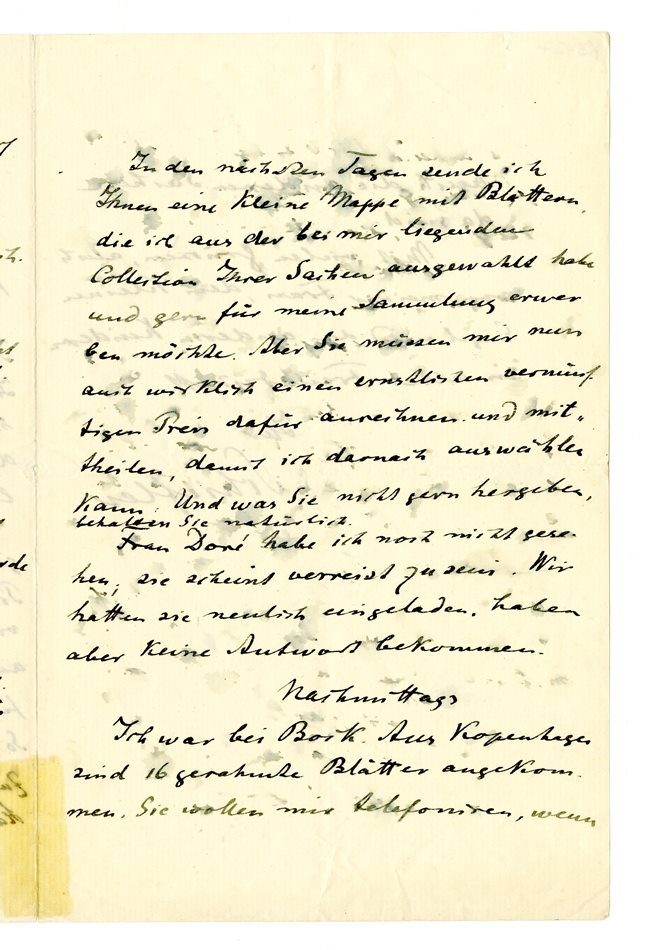 In den nächsten Tagen sende ich
Ihnen eine kleine Mappe mit Blättern,
die ich aus der bei mir liegenden
Collection Ihrer Sachen ausgewählt habe
und gern für meine Sammlung erwer
ben möchte. Aber Sie müssen mir nun
auch wirklich einen ernstlichen vernünf-
tigen Preis dafür anrechnen und mit-
theilen, damit ich darnach auswählen
kann. Und was Sie nicht gern hergeben,
behalten Sie natürlich.
Frau Doré habe ich noch nicht gese-
hen, sie scheint verreist zu sein. Wir
hatten sie neulich eingeladen, haben
aber keine Antwort bekommen.
Nachmittags
Ich war bei Bock. Aus Kopenhagen
sind 16 gerahmte Blätter angekom-
men. Sie wollen mir telefoniren, wenn